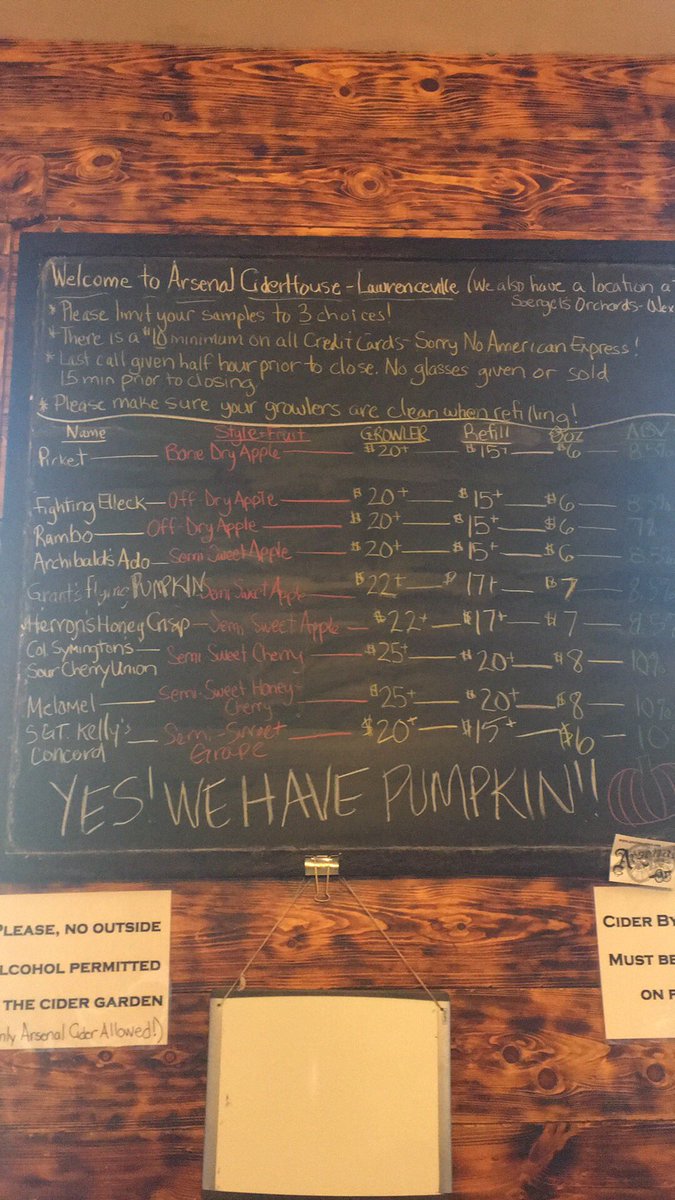 Welcome to Arsenal CiderHouse - Lawrenceville (We also have a location a
Soergels Orchards - Wex
* Please limit your samples to 3 choices!
* There is a $10 minimum on all Credit Cards - Sorry No American Express!
* Last call given half hour prior to close. No glasses given or sold
15 min prior to closing.
* Please make sure your growlers are clean when refilling!
Name Style + Fruit GROWLER Refill 8oz ABV
Picket Bone Dry Apple $20+ $15+ $6 8.5%
Fighting Elleck Off Dry Apple $20+ $15+ $6
Rambo Off-Dry Apple $20+ $15+ $6
Archibald's Ado Semi Sweet Apple $20+ $15+ $6
Grant's Flying PUMPKIN Semi Sweet Apple $22+ $17+ $7
Herron's Honey Crisp Semi Sweet Apple $22+ $17+ $7
Col Symingtons Semi Sweet Cherry $25+ $20+ $8 10%
Sour Cherry Union
Melomel Semi-Sweet Honey- $25+ $20+ $8 10%
Cherry
SGT. Kelly's Semi-Sweet $20+ $15+ $6
Concord Grape
YES! WE HAVE PUMPKIN!!
Arsenal
PLEASE, NO OUTSIDE
LCOHOL PERMITTED
THE CIDER GARDEN
nly Arsenal Cider Allowed!)
CIDER BY
MUST BE
ON